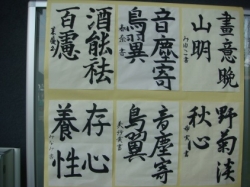 畫意晚
山明
音塵寄
鳥翼
酒能祛
百慮
野菊淡
秋心
音塵寄
鳥翼
存心
養性